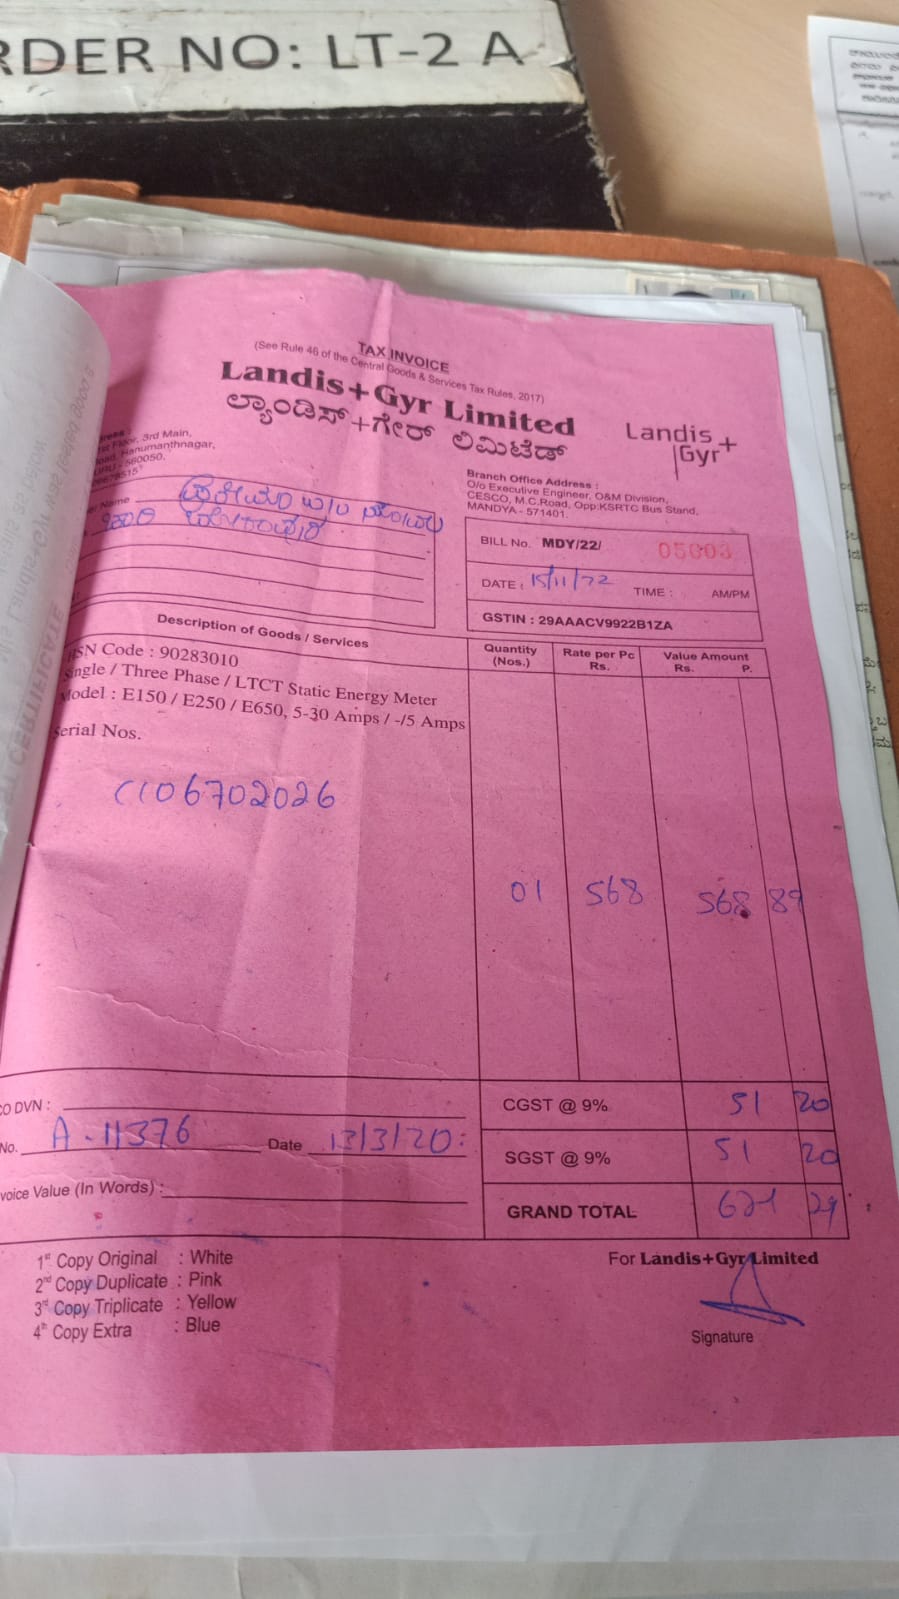 RDER NO: LT-2 A
TAX INVOICE
(See Rule 46 of the Central Goods & Services Tax Rules, 2017)
Landis+Gyr Limited
ಲ್ಯಾಂಡಿಸ್+ಗೇರ್ ಲಿಮಿಟೆಡ್
Landis+
Gyr
ress :
1st Floor, 3rd Main,
oad, Hanumanthnagar,
URU - 560050.
Branch Office Address :
O/o Executive Engineer, O&M Division,
CESCO, M.C.Road, Opp:KSRTC Bus Stand,
MANDYA - 571401.
er Name
BILL No. MDY/22/ 05003
DATE : 15/11/22 TIME : AM/PM
GSTIN : 29AAACV9922B1ZA
Description of Goods / Services
Quantity (Nos.)
Rate per Pc Rs.
Value Amount Rs. P.
HSN Code : 90283010
Single / Three Phase / LTCT Static Energy Meter
Model : E150 / E250 / E650, 5-30 Amps / -/5 Amps
Serial Nos.
C1106702026
01 568 568 89
CO DVN :
CGST @ 9% 51 20
No. A-11376 Date 13/3/20
SGST @ 9% 51 20
voice Value (In Words) :
GRAND TOTAL 671 29
1st Copy Original : White
2nd Copy Duplicate : Pink
3rd Copy Triplicate : Yellow
4th Copy Extra : Blue
For Landis+Gyr Limited
Signature